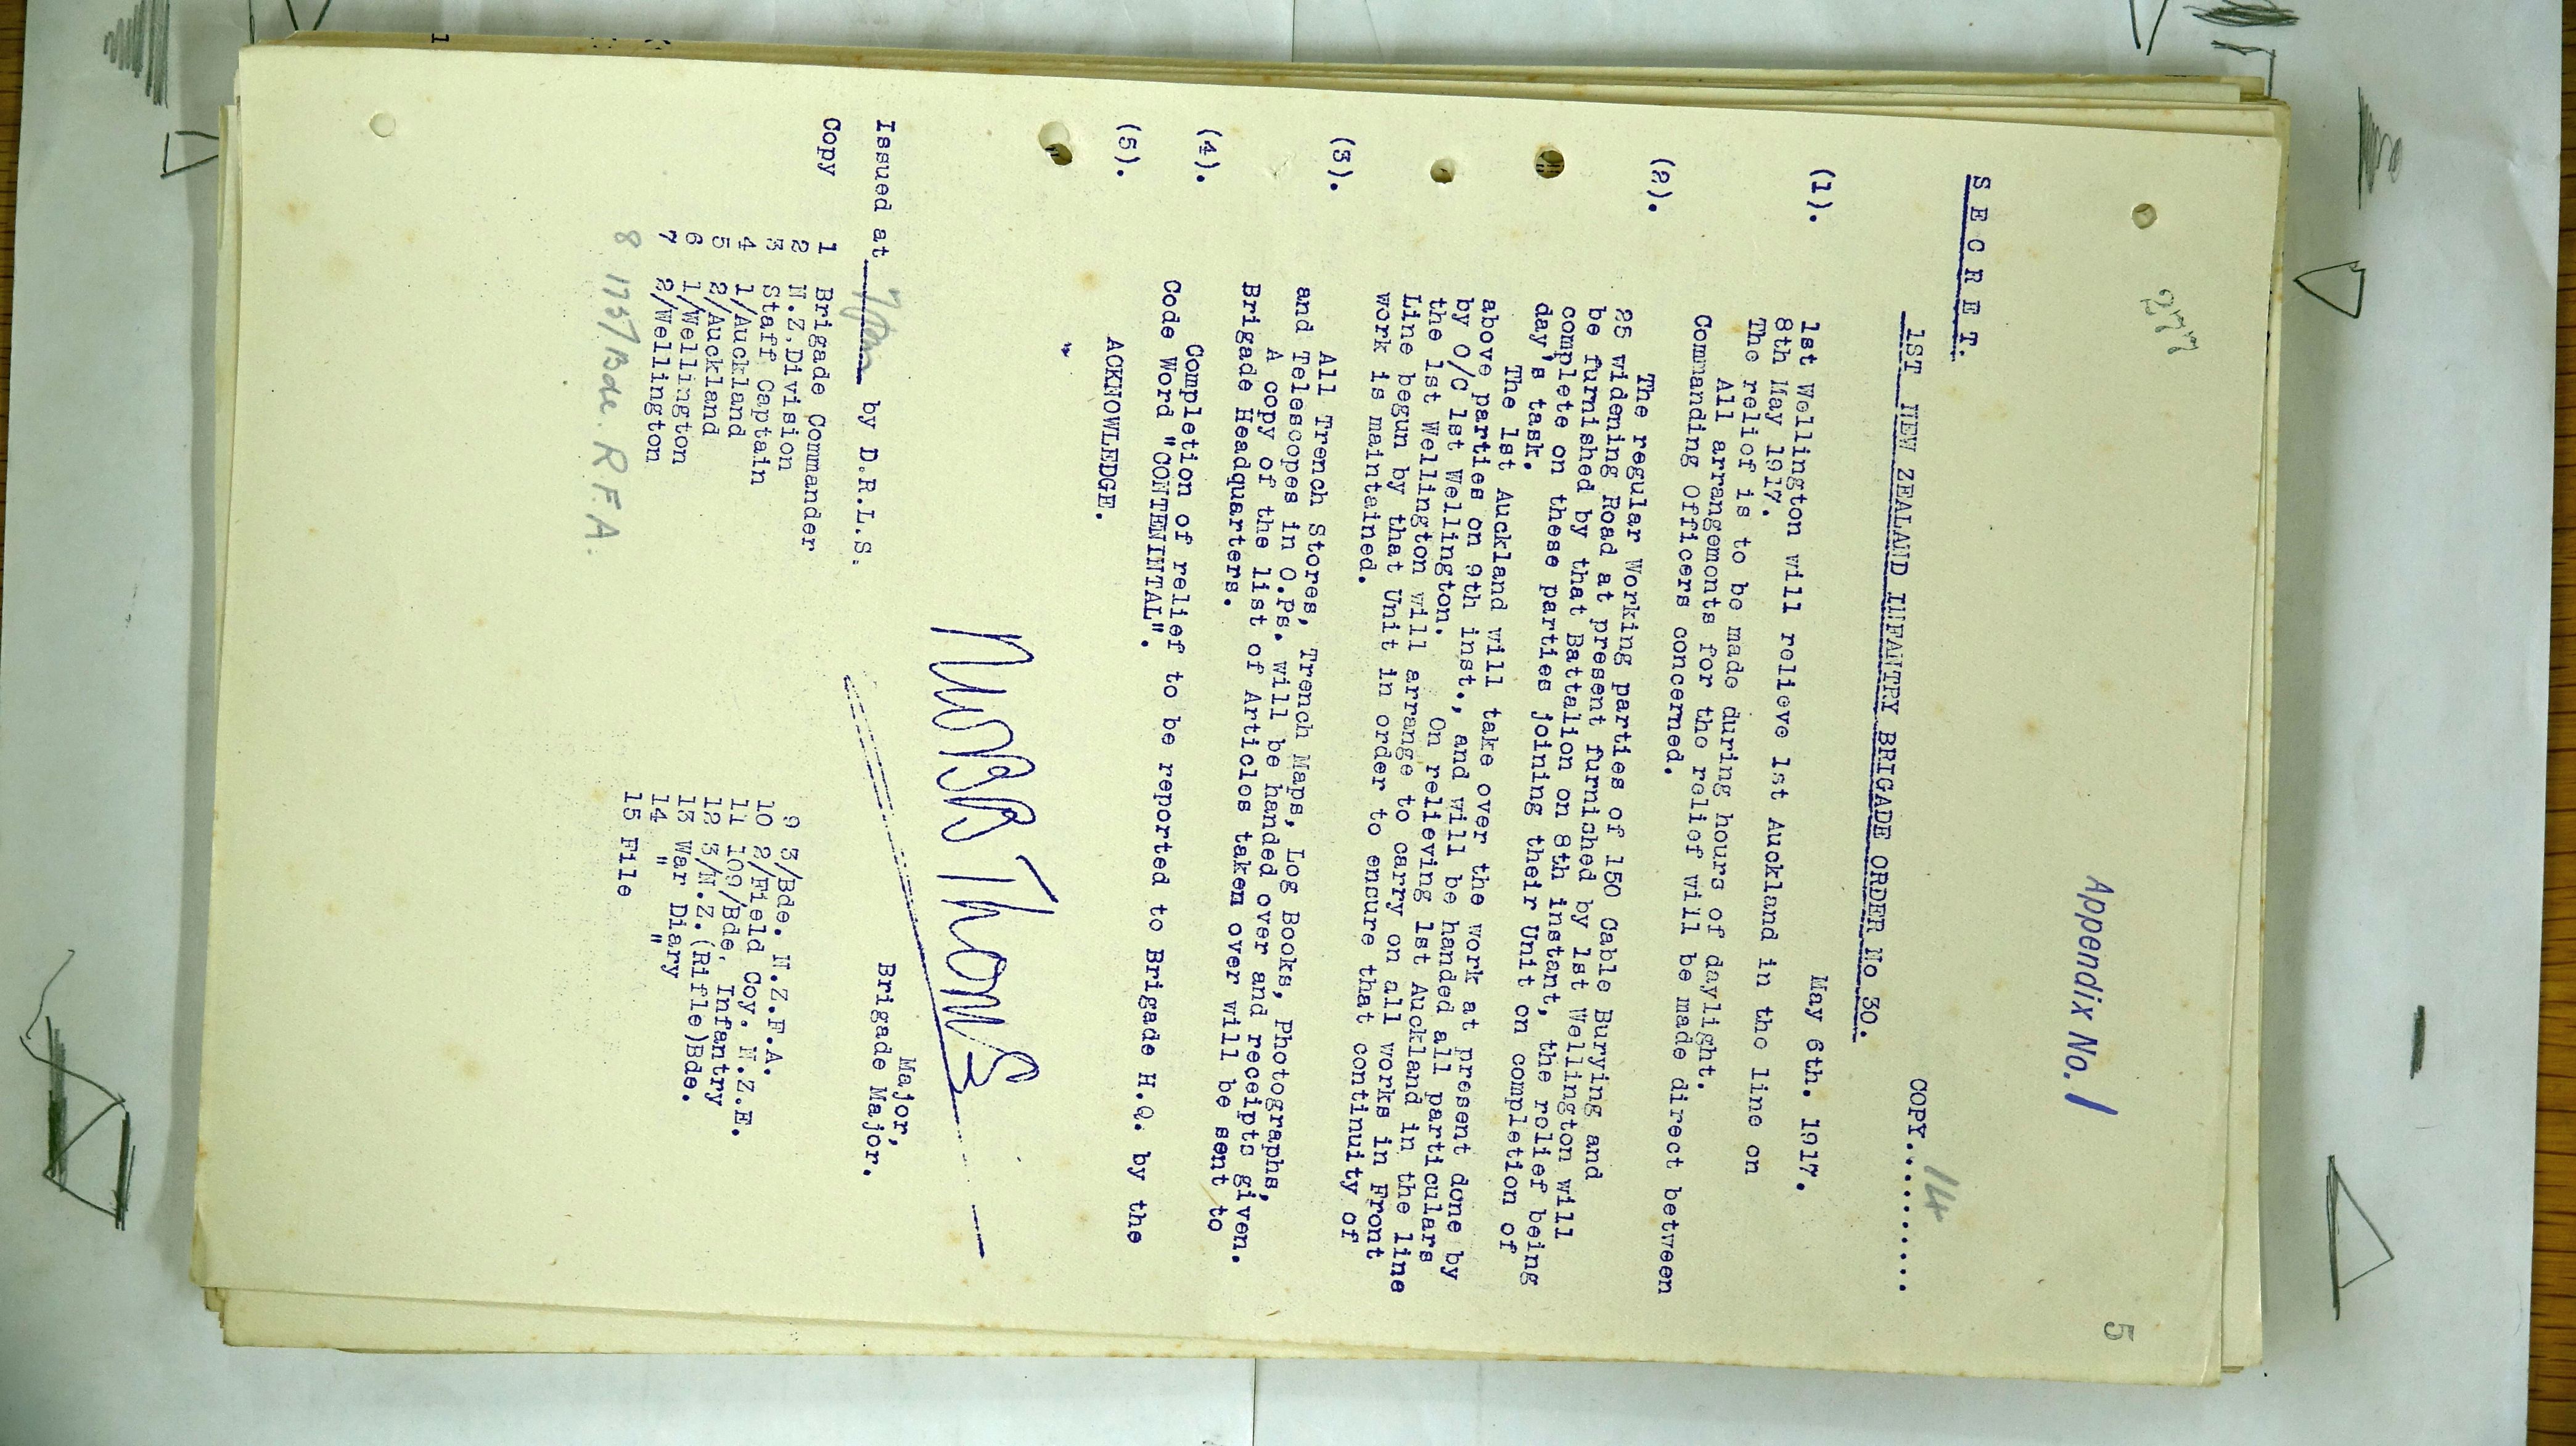 277
Appendix No. 1
5
S E C R E T.
COPY. 14 ..........
1ST NEW ZEALAND INFANTRY BRIGADE ORDER No 30.
May 6th. 1917.
(1). 1st Wellington will relieve 1st Auckland in the line on
8th May 1917.
The relief is to be made during hours of daylight.
All arrangements for the relief will be made direct between
Commanding Officers concerned.
(2). The regular Working parties of 150 Cable Burying and
25 widening Road at present furnished by 1st Wellington will
be furnished by that Battalion on 8th instant, the relief being
complete on these parties joining their Unit on completion of
day's task.
The 1st Auckland will take over the work at present done by
above parties on 9th inst., and will be handed all particulars
by O/C 1st Wellington. On relieving 1st Auckland in the line
the 1st Wellington will arrange to carry on all works in Front
Line begun by that Unit in order to ensure that continuity of
work is maintained.
(3). All Trench Stores, Trench Maps, Log Books, Photographs,
and Telescopes in O.Ps. will be handed over and receipts given.
A copy of the list of Articles taken over will be sent to
Brigade Headquarters.
(4). Completion of relief to be reported to Brigade H.Q. by the
Code Word "CONTENINTAL".
(5). ACKNOWLEDGE.
Major,
Brigade Major.
Issued at by D.R.L.S.
Copy 1 Brigade Commander
2 N.Z.Division
3 Staff Captain
4 1/Auckland
5 2/Auckland
6 1/Wellington
7 2/Wellington
8 173/Bde. R.F.A.
9 3/Bde. N.Z.F.A.
10 2/Field Coy. N.Z.E.
11 109/Bde. Infantry
12 3/N.Z.(Rifle)Bde.
13 War Diary
14 " "
15 File